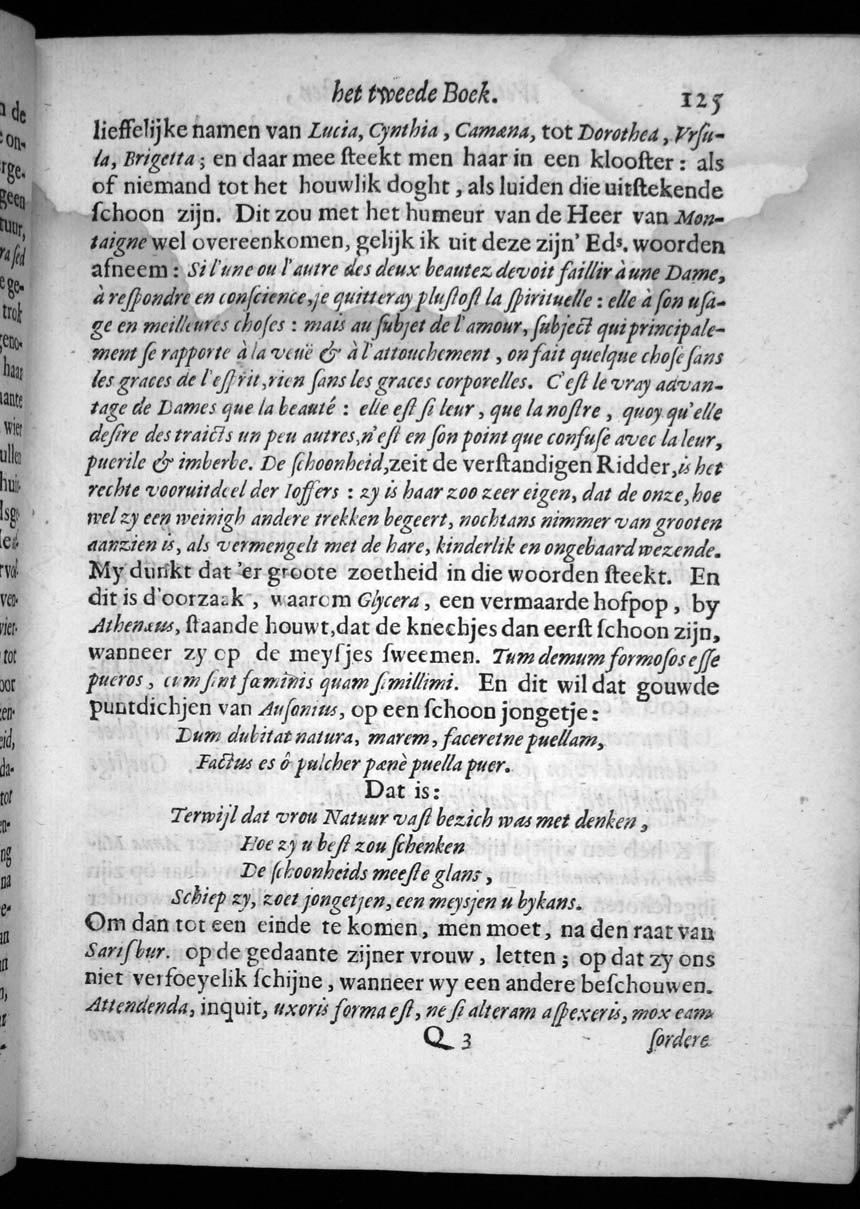 het tweede Boek. 125
lieffelijke namen van Lucia, Cynthia, Camæna, tot Dorothea, Vrſu-
la, Brigetta; en daar mee ſteekt men haar in een klooſter: als
of niemand tot het houwlik doght, als luiden die uitſtekende
ſchoon zijn. Dit zou met het humeur van de Heer van Mon-
taigne wel overeenkomen, gelijk ik uit deze zijn' Eds. woorden
afneem: Si l'une ou l'autre des deux beautez devoit faillir à une Dame,
à reſpondre en conſcience, je quitteray pluſtoſt la ſpirituelle: elle à ſon uſa-
ge en meilleures choſes: mais au ſubjet de l'amour, ſubject qui principale-
ment ſe rapporte à la veuë & à l'attouchement, on fait quelque choſe ſans
les graces de l'eſprit, rien ſans les graces corporelles. C'eſt le vray advan-
tage de Dames que la beauté: elle eſt ſi leur, que la noſtre, quoy qu'elle
deſire des traicts un peu autres, n'eſt en ſon point que confuſe avec la leur,
puerile & imberbe. De ſchoonheid, zeit de verſtandigen Ridder, is het
rechte vooruitdeel der Ioffers: zy is haar zoo zeer eigen, dat de onze, hoe
wel zy een weinigh andere trekken begeert, nochtans nimmer van grooten
aanzien is, als vermengelt met de hare, kinderlik en ongebaard wezende.
My dunkt dat 'er groote zoetheid in die woorden ſteekt. En
dit is d'oorzaak, waarom Glycera, een vermaarde hofpop, by
Athenæus, ſtaande houwt, dat de knechjes dan eerſt ſchoon zijn,
wanneer zy op de meyſjes ſweemen. Tum demum formoſos eſſe
pueros, cum ſint fœminis quam ſimillimi. En dit wil dat gouwde
puntdichjen van Auſonius, op een ſchoon jongetje:
Dum dubitat natura, marem, faceretne puellam,
Factus es ô pulcher pænè puella puer.
Dat is:
Terwijl dat vrou Natuur vaſt bezich was met denken,
Hoe zy u beſt zou ſchenken
De ſchoonheids meeſte glans,
Schiep zy, zoet jongetjen, een meysjen u bykans.
Om dan tot een einde te komen, men moet, na den raat van
Sarisbur. op de gedaante zijner vrouw, letten; op dat zy ons
niet verfoeyelik ſchijne, wanneer wy een andere beſchouwen.
Attendenda, inquit, uxoris forma eſt, ne ſi alteram aſpexeris, mox eam
Q 3 ſordere